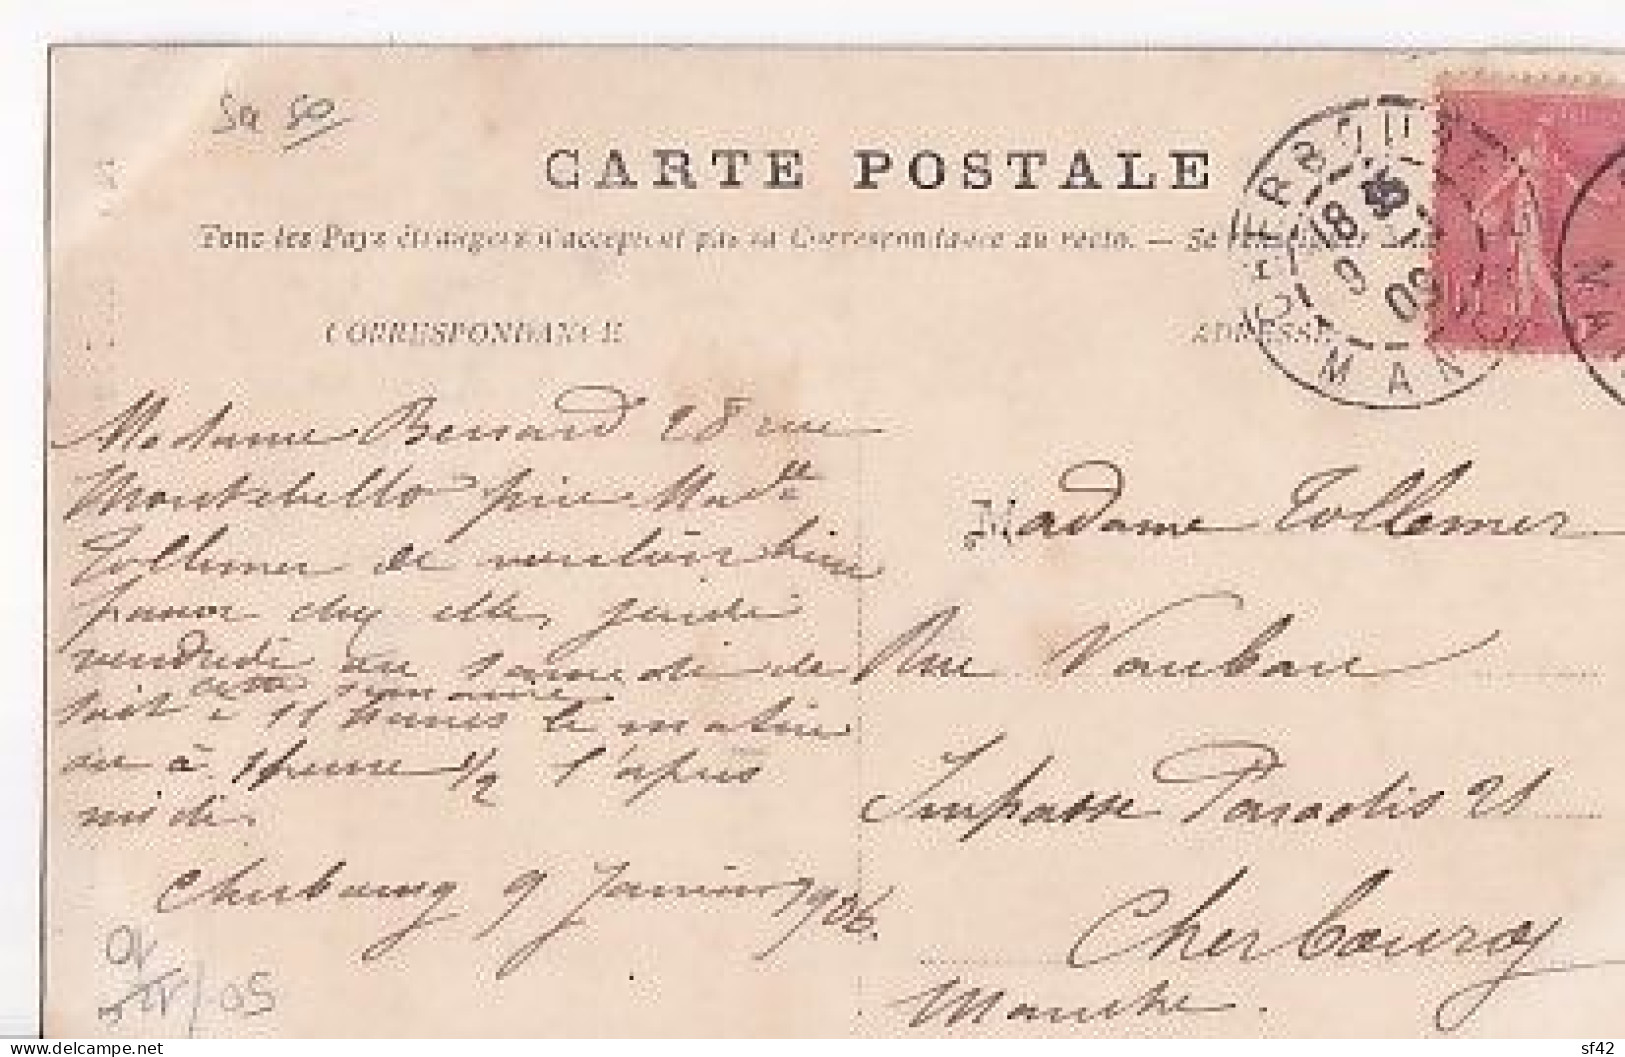 CARTE POSTALE
Tous les Pays étrangers n'acceptent pas la Correspondance au recto. — Se
CORRESPONDANCE
ADRESSE
CHERBOURG
MANCHE
18 35
9
06
Madame Bessard 28 rue
Montebello prie Mad^e
Tollemer de vouloir bien
passer chez elle, jeudi
vendredi ou samedi de
cette semaine
soit à 11 heures le matin
ou à 1 heure 1/2 l'après
midi.
Cherbourg 9 Janvier 1906.
Madame Tollemer
Rue Vauban
Impasse Paradis 21
Cherbourg
Manche.
delcampe.net
sf42